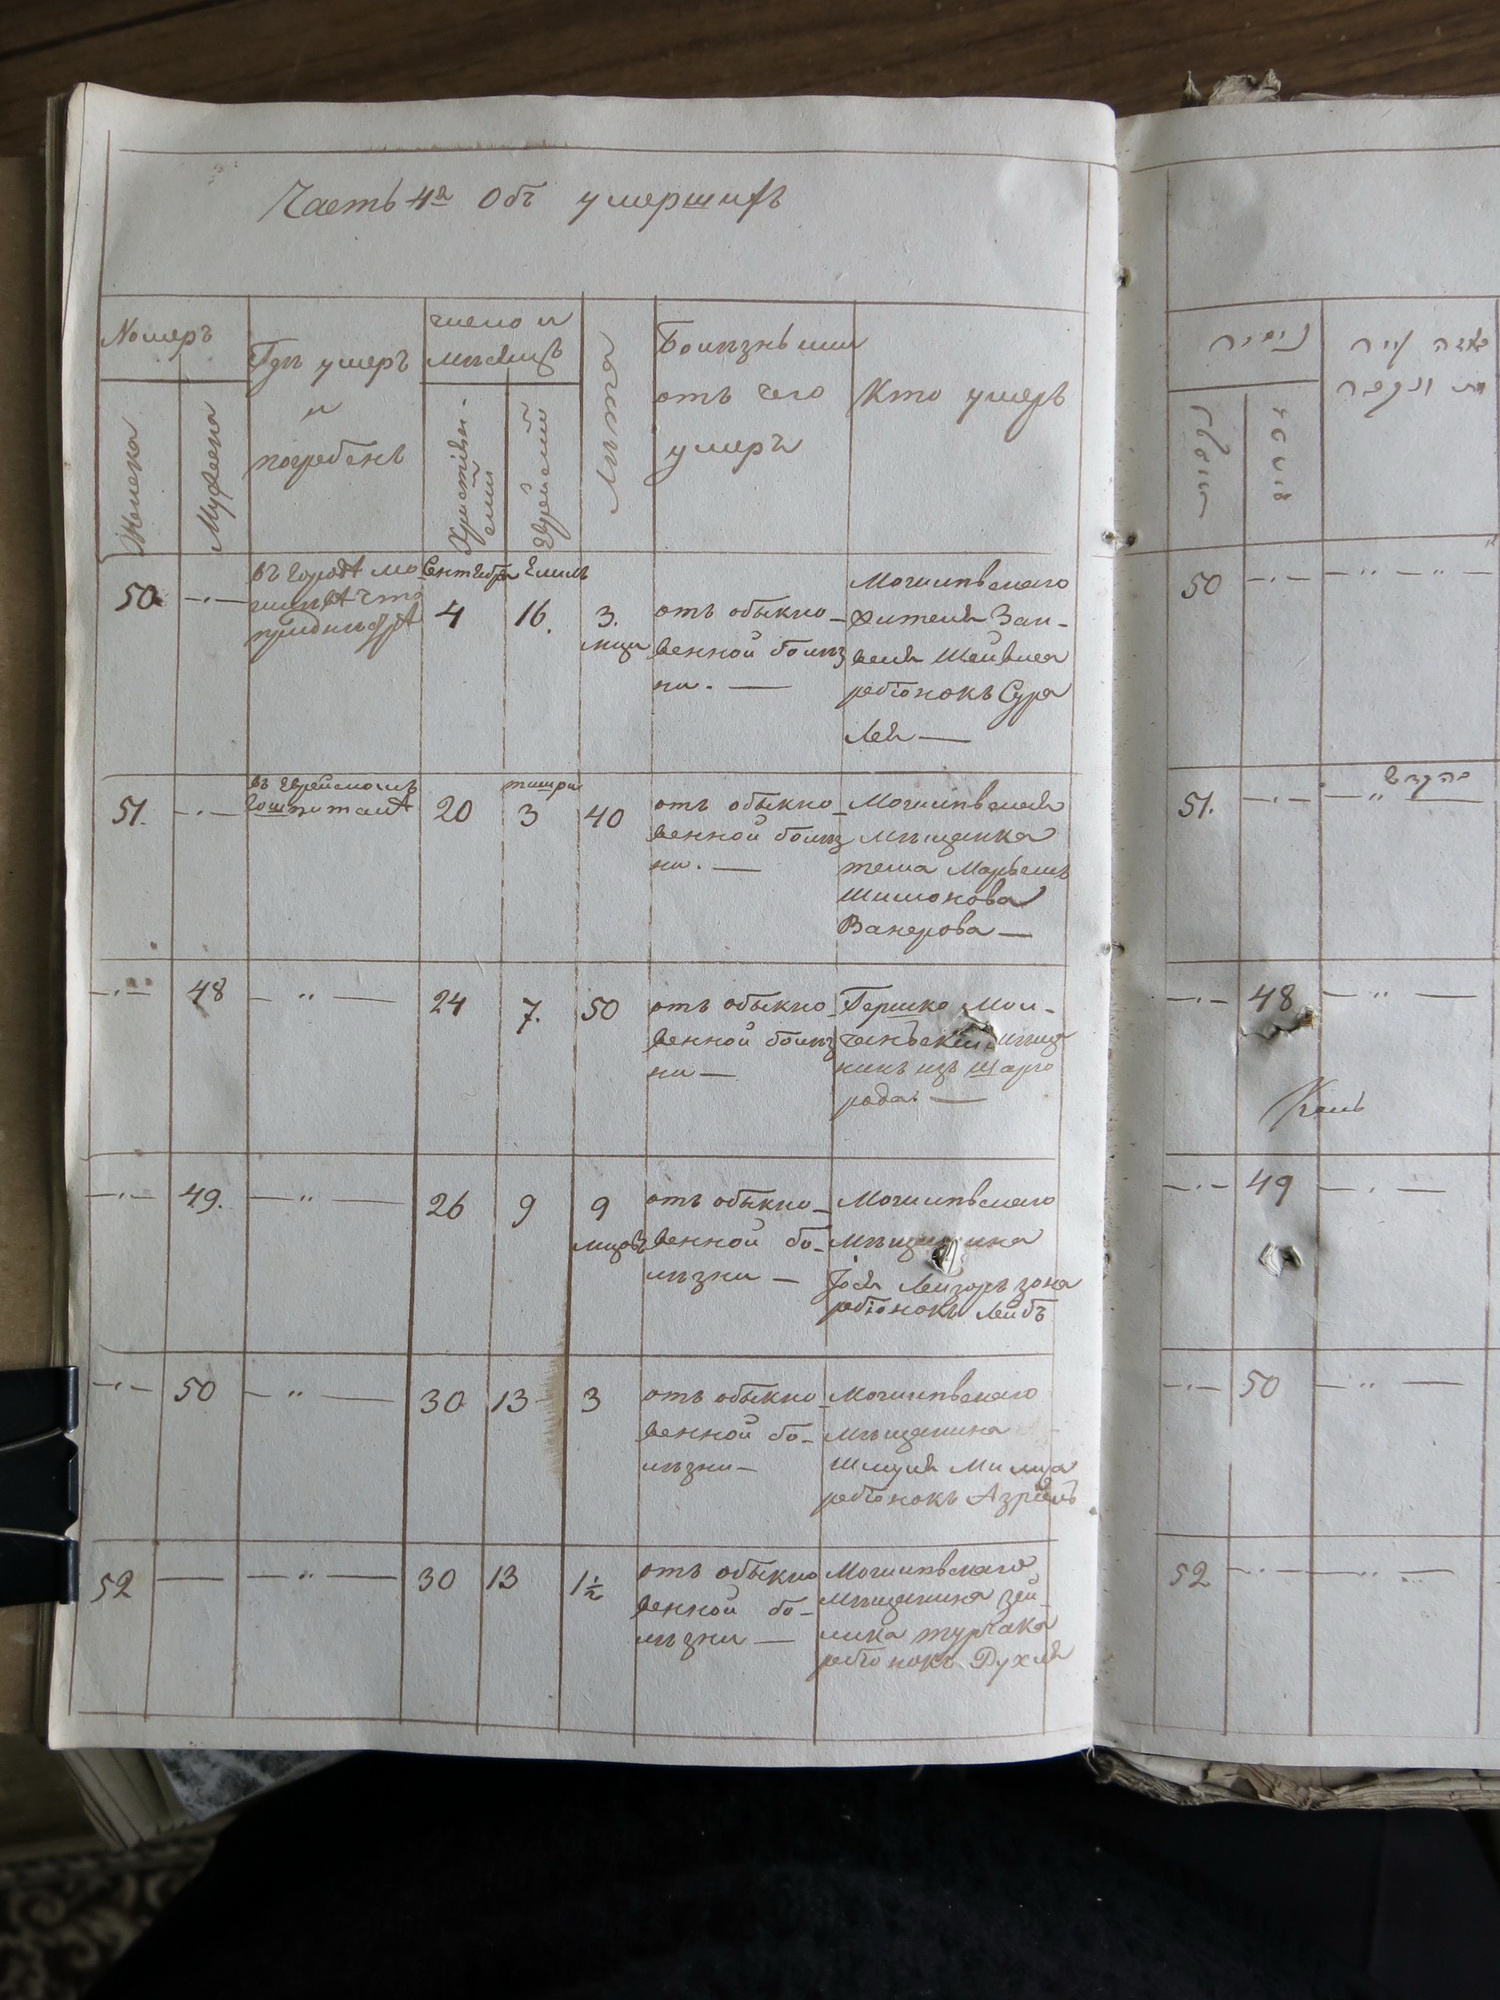 Часть 4я Объ умершихъ
Номеръ
Женска
Мужеска
Гдѣ умеръ
и
погребенъ
число и
мѣсяцъ
Христіян-
скій
Еврейскій
Лѣта
Болѣзнь или
отъ чего
умеръ
Кто умеръ
50
въ городѣ мо
гилевѣ что
приднѣстрѣ
Сентября
4
Елиль
16.
3.
мци
отъ обыкно-
венной болѣз
ни. —
Могилевскаго
жителя Зан-
веля Шейвиса
ребіонокъ Сура
Лея —
51.
въ Еврейскомъ
гошпиталѣ
20
тишри
3
40
отъ обыкно-
венной болѣз
ни. —
Могилевская
мѣщанка
Шимонова
Ванерова —
48
— " —
24
7.
50
отъ обыкно-
венной болѣз
ни —
Гершко
мѣща
нинъ изъ Шарго
рода. —
49.
— " —
26
9
9
мцовъ
отъ обыкно-
венной бо-
лѣзни —
Могилевскаго
мѣщанина
ребіонокъ Лейбъ
50
— " —
30
13
3
отъ обыкно-
венной бо-
лѣзни —
Могилевскаго
мѣщанина
Шмуля
ребіонокъ Азріель
52
— " —
30
13
1½
отъ обыкно
венной бо-
лѣзни —
Могилевскаго
мѣщанина Зей-
лика турчака
ребіонокъ Рухля
50
51.
48
49
50
52